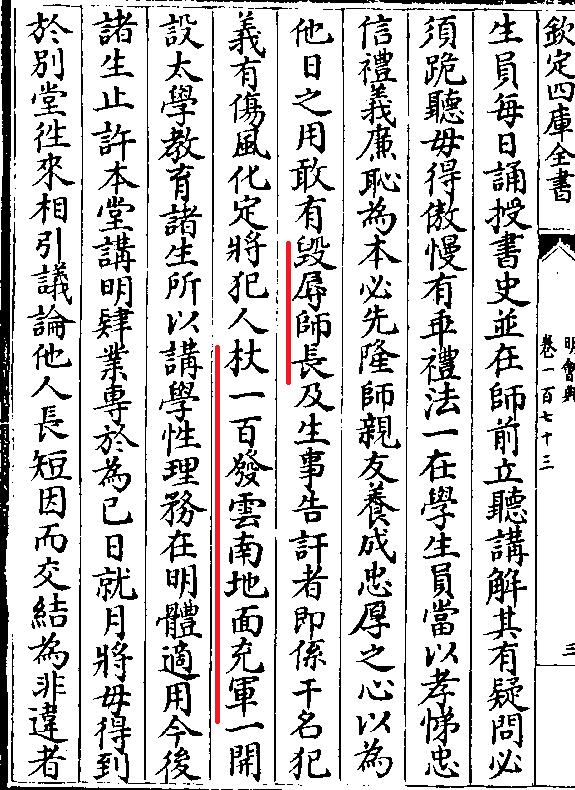 欽定四庫全書
明會典
卷一百七十三
三
生員每日誦授書史並在師前立聽講解其有疑問必
須跪聽毋得傲慢有乖禮法一在學生員當以孝悌忠
信禮義廉恥為本必先隆師親友養成忠厚之心以為
他日之用敢有毀辱師長及生事告訐者即係干名犯
義有傷風化定將犯人杖一百發雲南地面充軍一開
設太學教育諸生所以講學性理務在明體適用今後
諸生止許本堂講明肄業專於為己日就月將毋得到
於別堂徃來相引議論他人長短因而交結為非違者